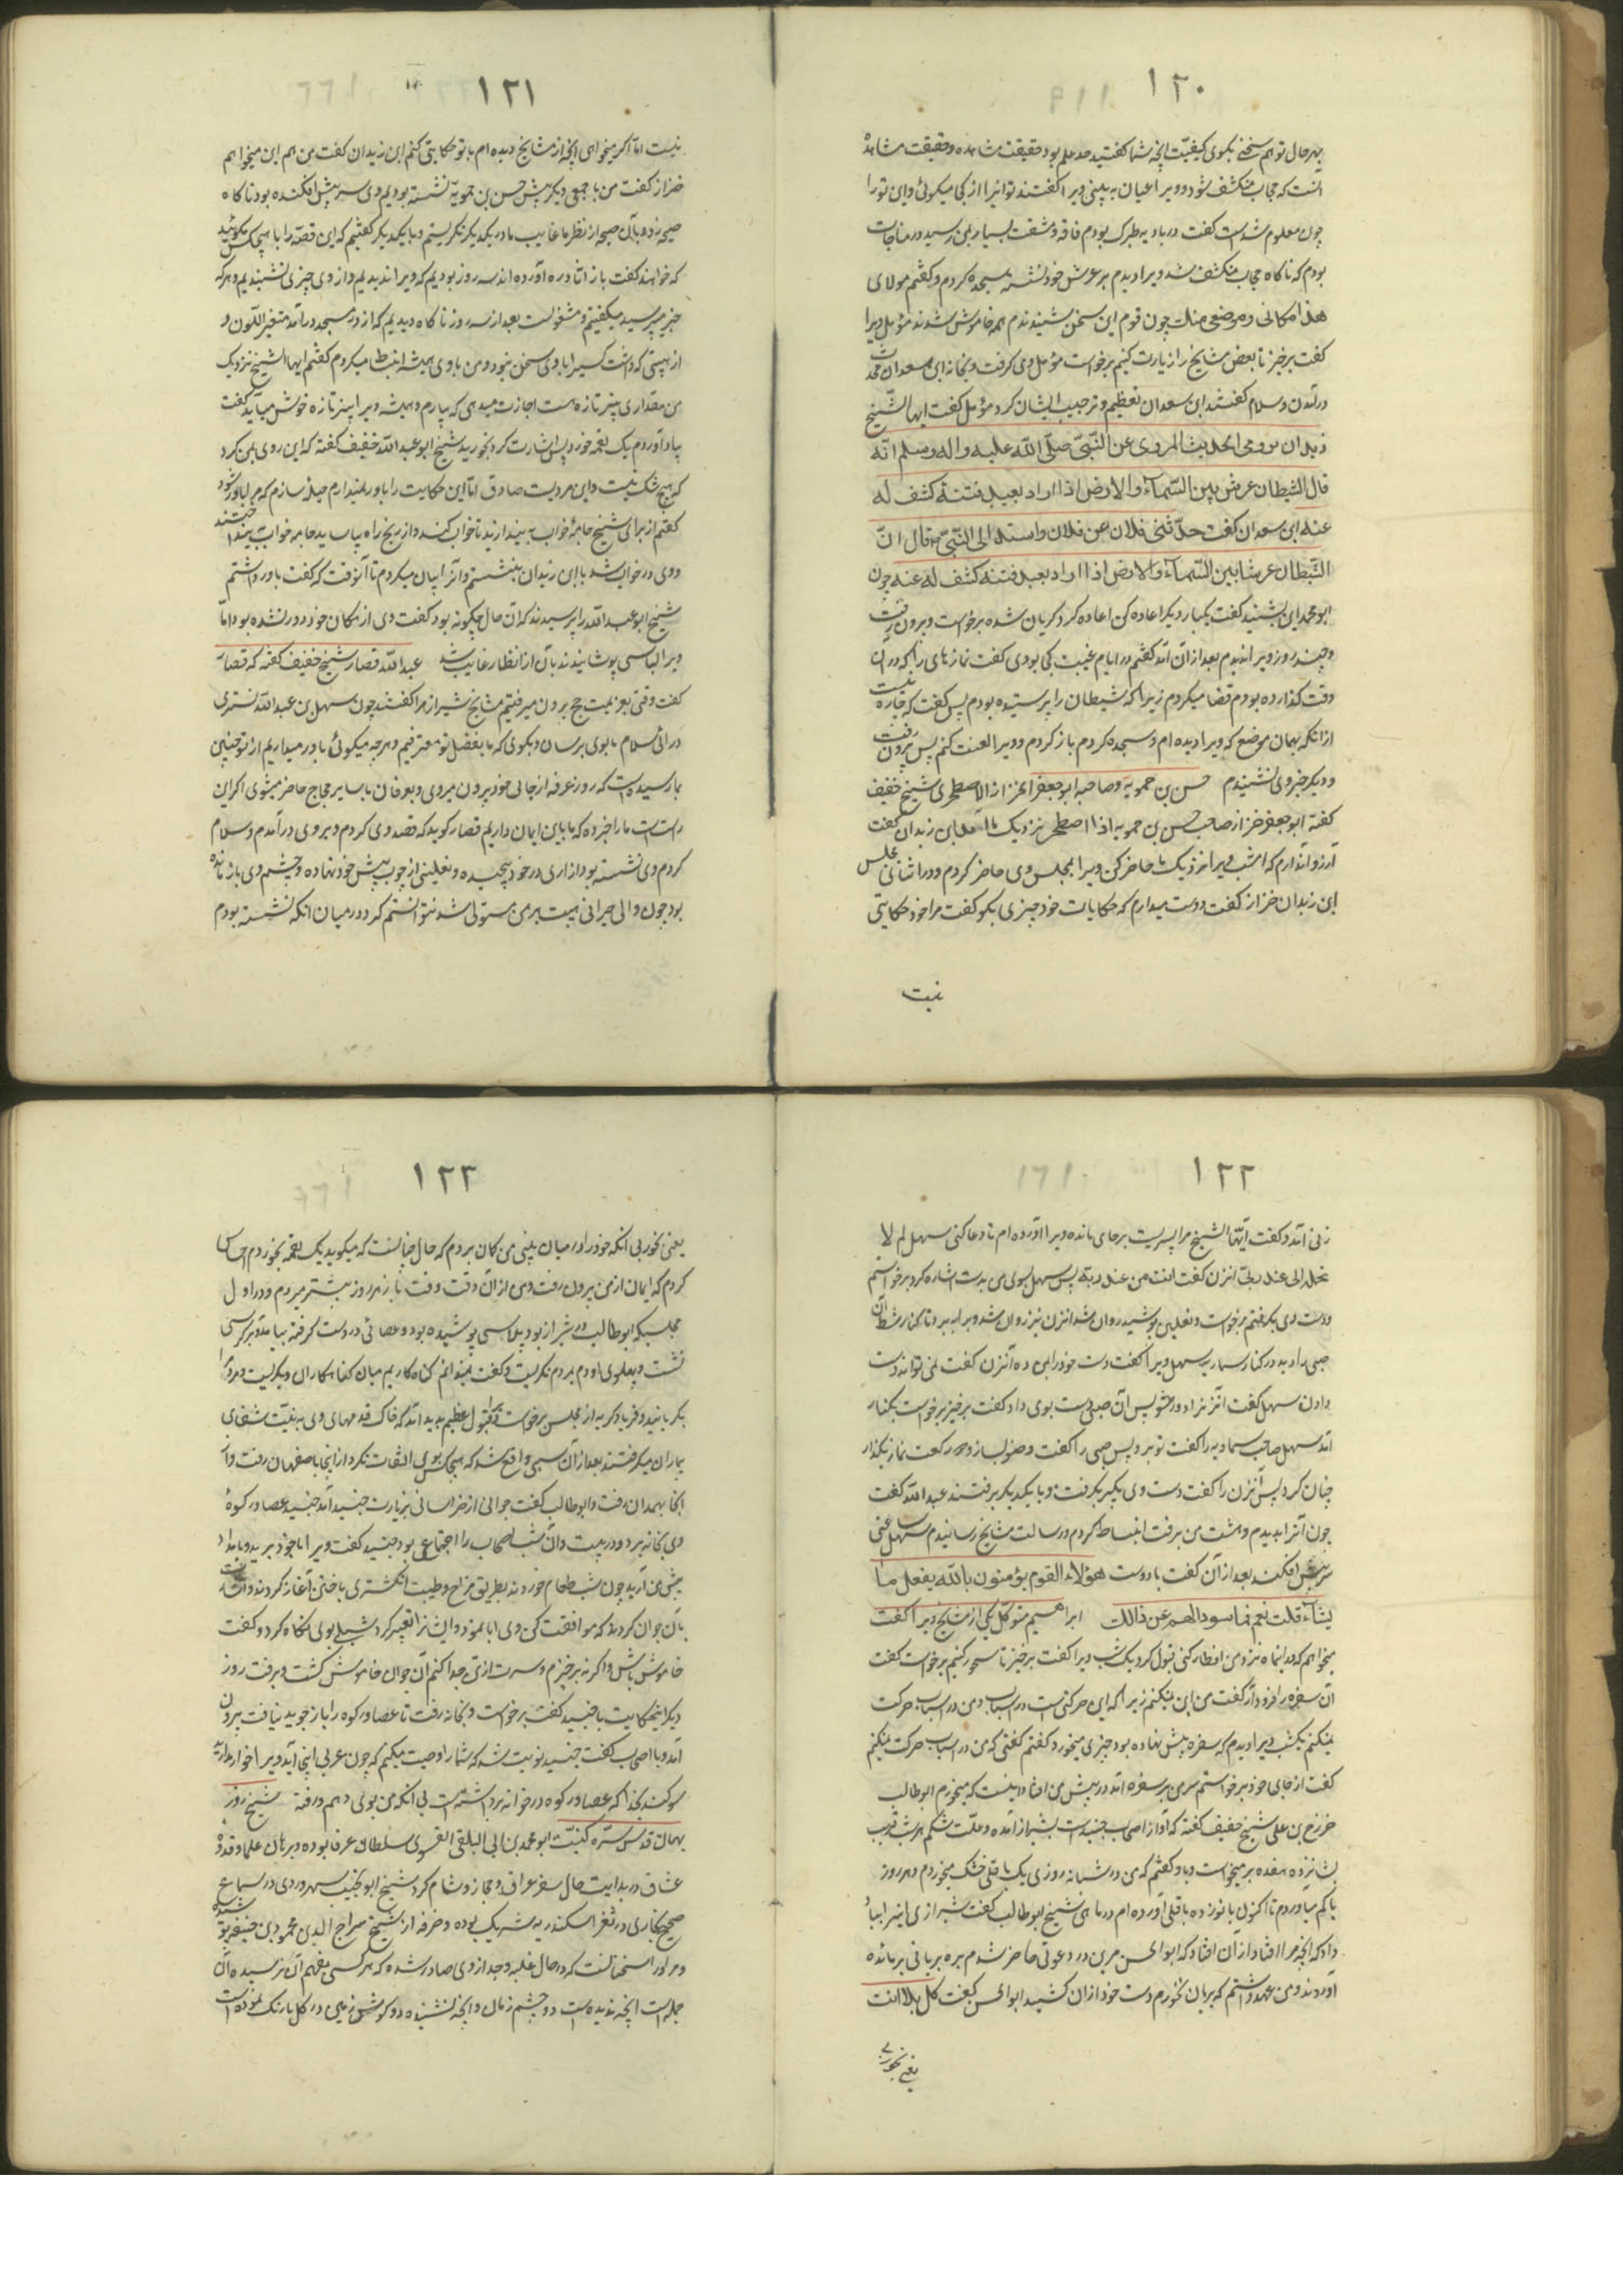 ۱۲۰
بهر حال تو هم سخنی بگوی کیفیّت آنچه شما گفتید حد علم بود حقیقت مشاهده و حقیقت مشاهده
آنست که حجاب منکشف شود و ویرا عیان به بینی ویرا گفتند تو اینرا از کجا میگوئی و این ترا
چون معلوم شده است گفت در بادیه بودم فاقه و مشقت بسیار بمن رسید در مناجات
بودم که ناگاه حجاب منکشف شد ویرا دیدم بر عرش خود نشسته سجده کردم و گفتم مولای
هذا مکانی و موضعی منک چون قوم این سخن شنیدند همه خاموش شدند مؤمل ویرا
گفت برخیز تا بعض مشایخ را زیارت کنیم برخواست مؤمل دست وی گرفت و بخانه ابن سعدان محدث
درآمدن و سلام گفتند ابن سعدان تعظیم و ترحیب ایشان کرد مؤمل گفت ایها الشیخ
نرید ان تروی الحدیث المروی عن النّبیّ صلّی اللّه علیه واله وسلم انّه
قال للشیطان عرش بین السّماء والارض اذا اراد بعبد فتنة کشف له
عنه ابن سعدان گفت حدّثنی فلان عن فلان واسنده الی النّبیّ قال انّ
للشّیطان عرشا بین السّماء والارض اذا اراد بعبد فتنة کشف له عنه چون
ابو محمد این بشنید گفت یکبار دیگر اعاده کن اعاده کرد گریان شده برخواست و برون رفت
و چند روز ویرا ندیدم بعد از آن آمد گفتم در ایام غیبت کجا بودی گفت نمازهای را که در آن
وقت گذارده بودم قضا میکردم زیرا که شیطان را پرستیده بودم پس گفت که چاره نیست
از آنکه بهمان موضع که ویرا دیده ام و سجده کردم باز گردم و ویرا لعنت کنم پس برون رفت
و دیگر خبر وی نشنیدم حسن بن حمویه و صاحبه ابو جعفر الخراز الاصطخری شیخ خفیف
گفته ابو جعفر خراز صاحب حسن بن حمویه اذا اصطخر نزدیک ما آمد ابن زیدان گفت
آرزو آن دارم که امشب ویرا نزدیک ما حاضر کن ویرا بمجلس وی حاضر کردم و در اثنای مجلس
ابن زیدان خراز گفت دوست میدارم که حکایات خود چیزی بگو گفت مرا خود حکایتی
نیست
۱۲۱
نیست امّا اگر میخواهی آنچه از مشایخ دیده ام با تو حکایتی کنم ابن زیدان گفت من هم این میخواهم
خراز گفت من با جمعی دیگر پیش حسن بن حمویه نشسته بودیم وی سر پیش افکنده بود ناگاه
صیحه زد و بآن صیحه از نظر ما غایب ما در یکدیگر نگریستیم و با یکدیگر گفتیم که این قصّه را با هیچکس نگوئید
که خواهند گفت باز انها دره آورده اند سه روز بودیم که ویرا ندیدیم و از وی چیزی نشنیدیم و هر که
خبر میپرسید میگفتیم مشغولست بعد از سه روز ناگاه دیدیم که از در مسجد درآمد متغیر اللّون و
از هیبتی که داشت کسیرا با وی سخن نبود و من با وی همیشه انبساط میکردم گفتم ایها الشیخ نزدیک
من مقداری پنیر تازه هست اجازت میدهی که بیارم و همیشه ویرا پنیر تازه خوش میآید گفت
بیاور آوردم یک لقمه خورد پس اشارت کرد بخورید شیخ ابو عبد اللّه خفیف گفته که ابن روی بمن کرد
که هیچ شک نیست و این مردیست صادق امّا این حکایت را باور نمیدارم حیلۀ سازم که مرا باور شود
گفتم از برای شیخ جامۀ خواب بیندازید تا خواب کند و از رنج راه بیاساید جامه خواب بینداختند
و وی در خواب شد با ابن زیدان بنشستم و آنرا بیان میکردم تا آنوقت که گفت باور داشتم
شیخ ابو عبد اللّه را پرسیدند که آن حال چگونه بود گفت وی از مکان خود دور نشده بود امّا
ویرا لباسی پوشانیدند بآن از انظار غایب شد عبد اللّه قصار شیخ خفیف گفته که قصار
گفت وقتی بعزیمت حج برون میرفتیم مشایخ شیراز مرا گفتند چون سهل بن عبد اللّه تستری
درائی سلام ما بوی برسان و بگوی که ما بفضل تو معترفیم و هرچه میگوئی باور میداریم از تو چنین
بما رسیده است که روز عرفه از جای خود برون میروی و بعرفات با سایر حجاج حاضر میشوی اگر این
راست است ما را خبر ده که ما باین ایمان داریم قصار گوید که قصد وی کردم و بر وی درآمدم و سلام
کردم وی نشسته بود ازاری در خود پیچیده و نعلینی از چوب پیش خود نهاده و چشم وی باز مانده
بود چون والی حیرانی هیبت بر من مستولی شد نتوانستم کرد در میان آنکه نشسته بودم
۱۲۲
زنی آمد و گفت ایّها الشیخ مرا پسریست بر جای مانده ویرا آورده ام تا دعا کنی سهل لم لا
تحمله الی عند ربّه انزن گفت انت من عند ربّه پس سهل بسوی من بدست اشاره کرد برخواستم
و دست وی بگرفتم برخواست و نعلین پوشید روان شد انزن نیز روان شد و برابر ببرد تا کنار شط آن
صبی را دید در کنار سماریه سهل ویرا گفت دست خود را بمن ده آنزن گفت نمی تواند دست
دادن سهل گفت آنزنرا دور شو پس آن صبی دست بوی داد گفت برخیز برخواست بکنار
آمد سهل صاحب سماریه را گفت تو برو پس صبی را گفت وضو بساز و دو رکعت نماز بگذار
چنان کرد پس آنزن را گفت دست وی بگیر بگرفت و با یکدیگر برفتند عبد اللّه گفت
چون آنرا بدیدم وحشت من برفت انبساط کردم و رسالت مشایخ رسانیدم سهل ساعتی
سر پیش افکند بعد از آن گفت یا دوست هؤلاء القوم یؤمنون باللّه یفعل ما
یشاء قلت نعم فما سوالهم عن ذالک ابراهیم متوکّل یکی از مشایخ ویرا گفت
میخواهم که در اینماه نزد من افطار کنی قبول کرد یک شب ویرا گفت برخیز تا سحور کنیم برخواست گفت
آن سفره را فرود آر گفت من این نمیکنم زیرا که این حرکتی است در اسباب و من در اسباب حرکت
نمیکنم یکشب ویرا دیدم که سفره پیش نهاده بود و چیزی میخورد گفتم گفتی که من در اسباب حرکت نمیکنم
گفت از جای خود برخواستم سر من بر سفره آمد در پیش من افتاد اینست که میخورم ابو طالب
خزرج بن علی شیخ خفیف گفته که او از اصحاب جنیدست بشیراز آمده و علّت شکم هر شب قریب
بشانزده هفده بر میخواست و با او گفتم که من در شبانه روزی یک باقلی خشک میخوردم و هر روز
با کم میآوردم تا اکنون با نوزده باقلی آورده ام در ماهی شیخ ابو طالب گفت شیرازی اینرا بیاد
داد که آنچه مرا افتاد از آن افتاد که ابو الحسن مزین در دعوتی حاضر شدم بره بریانی بر مائده
آوردند و من عهد داشتم که بریان نخورم دست خود از ان کشید ابو الحسن گفت کل بلا انت
یعنی بخور بی
۱۲۳
یعنی بخور بی آنکه خود را در میان بینی من گمان بردم که حال چنانست که میگوید یک لقمه بخوردم احساس
کردم که ایمان از من برون رفت و من از آن وقت وقت باز هر روز بیشتر میردم و در اول
مجلسیکه ابو طالب در شیراز بود پلاسی پوشیده بود و عصائی در دست گرفته بیامد و بر کرسی
نشست و پهلوی او دم بمردم نگریست و گفت نمیدانم گناه کاریم میان گناهکاران و بگریست و مردم را
بگریانید و فریاد و گریه از مجلس برخواست و قبول عظیم پدید آمد که خاک قدمهای وی به نیّت شفای
بیماران میگرفتند بعد از آن سببی واقع شد که هیچکس بوی التفات نکرد از اینجا باصفهان رفت و از
آنجا بهمدان رفت و ابو طالب گفت جوانی از خراسانی بزیارت جنید آمد جنید عصا و رکوۀ
وی بخانه برد و در بست و آن شب اصحاب را اجتماعی بود جنید گفت ویرا با خود ببرید و بامداد
پیش من آرید چون شب طعام خوردند بطریق مزاح و طیبت انگشتری باختن آغاز کردند و التماس
بآن جوان کردند که موافقت کن وی ابا نمود و ایشانرا تغییر کرد شبلی بوی نگاه کرد و گفت
خاموش باش و اگر نه برخیزم و سرت از تن جدا کنم آن جوان خاموش گشت و برفت روز
دیگر اینحکایت با جنید گفت برخواست و بخانه رفت تا عصا و رکوه را باز جوید نیافت برون
آمد و با اصحاب گفت جنید نوبت شد که شما را وصیت میکنم که چون غریبی اینجا آید ویرا خوار مدارید
سوگند بخدا که عصا و رکوه در خانه برداشته است بی آنکه من بوی دهم و رفته شیخ روز
بهان قدس سرّه کنیّت ابو محمد بن ابی البلقی الفسوی سلطان عرفا بوده و برهان علما و قدوة
عشاق در بدایت حال سفر عراق و حجاز و شام کرد شیخ ابو نجیب سهروردی در سماع
صحیح بخاری در ثغر اسکندریه شریک بوده و خرقه از شیخ سراج الدین محمود بن خلیفه پوشیده
و مر او را سخنانست که در حال غلبه و وجد از وی صادر شده که هر کسی بفهم آن نرسیده آن
جمله است آنچه ندیده است دو چشم زمان و آنچه نشنیده دو گوش زمین در گل ما رنگ نموده است